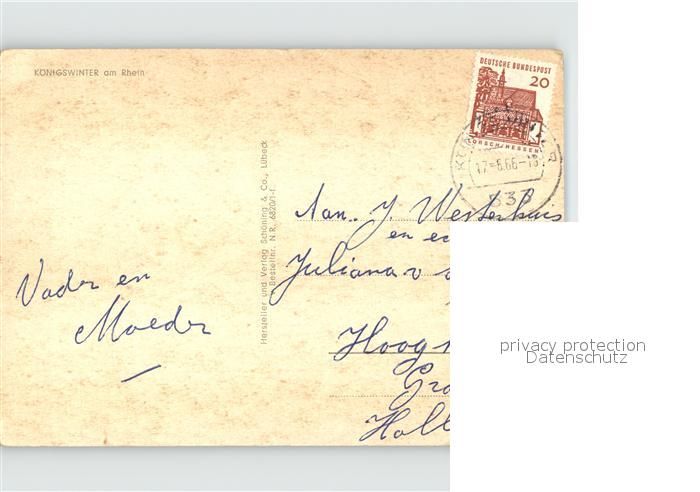 KÖNIGSWINTER am Rhein
DEUTSCHE BUNDESPOST
20
LORSCH/HESSEN
17.-6.66-18
533
Hersteller und Verlag Schöning & Co., Lübeck
Bestellnr. N.R. 6820/1-f
Aan. J. Westerhuis
en
Juliana v
Hoog
Gro
Holl
Vader en
Moeder
privacy protection
Datenschutz